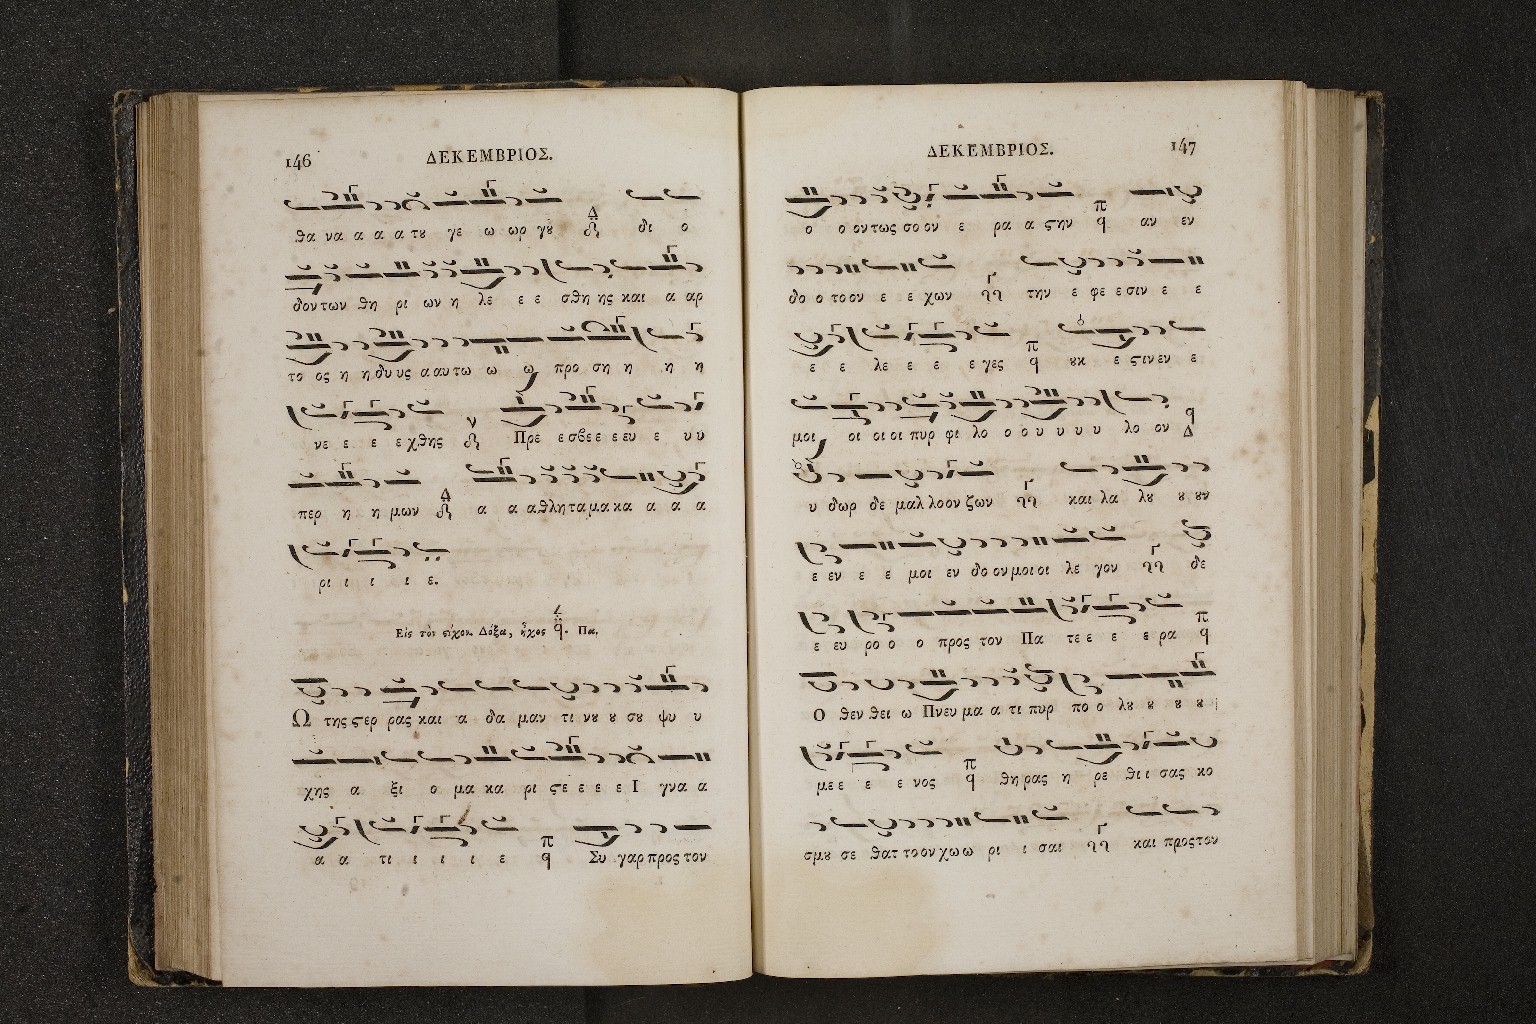 146
ΔΕΚΕΜΒΡΙΟΣ.
θα να α α α τȣ γε ω ωρ γȣ δι ο
δον των θη ρι ων η λε ε ε σθη ης και α αρ
το ος η η δυ υς α αυ τω ω ω, προ ση η η η
νε ε ε ε χθης Πρε ε σβε ε ε ευ ε υ υ
περ η η μων α α α θλη τα μα κα α α α
ρι ι ι ι ε.
Εἰς τὸν ϛίχον. Δόξα, ἦχος Πα.
Ω της ϛερ ρας και α δα μαν τι νȣ ȣ σȣ ψυ υ
χης α ξι ο μα κα ρι ϛε ε ε ε Ι γνα α
α α τι ι ι ι ε Συ γαρ προς τον
147
ΔΕΚΕΜΒΡΙΟΣ.
ο ο ον τως σο ον ε ρα α ϛην αν εν
δο ο το ον ε ε χων την ε φε ε σιν ε ε
ε ε λε ε ε ε γες ȣκ ε ϛιν εν ε
μοι, οι οι οι πυρ φι λο ο ο υ υ υ υ λο ον
υ δωρ δε μαλ λο ον ζων και λα λȣ ȣ ȣν
ε εν ε ε μοι εν δο ον μοι οι λε γον δε
ε ευ ρο ο ο προς τον Πα τε ε ε ε ρα
Ο θεν θει ω Πνευ μα α τι πυρ πο ο λȣ ȣ ȣ ȣ
με ε ε ε νος θη ρας η ρε θι ι σας κο
σμȣ σε θατ το ον χω ω ρι ι σαι και προς τον